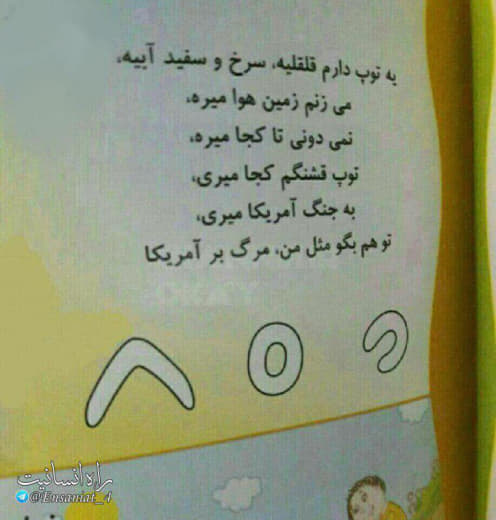 یه توپ دارم قلقلیه، سرخ و سفید آبیه،
می زنم زمین هوا میره،
نمی دونی تا کجا میره،
توپ قشنگم کجا میری،
به جنگ آمریکا میری،
تو هم بگو مثل من، مرگ بر آمریکا
OKAY
۸ ۵
راه انسانیت
@Ensaniat_4